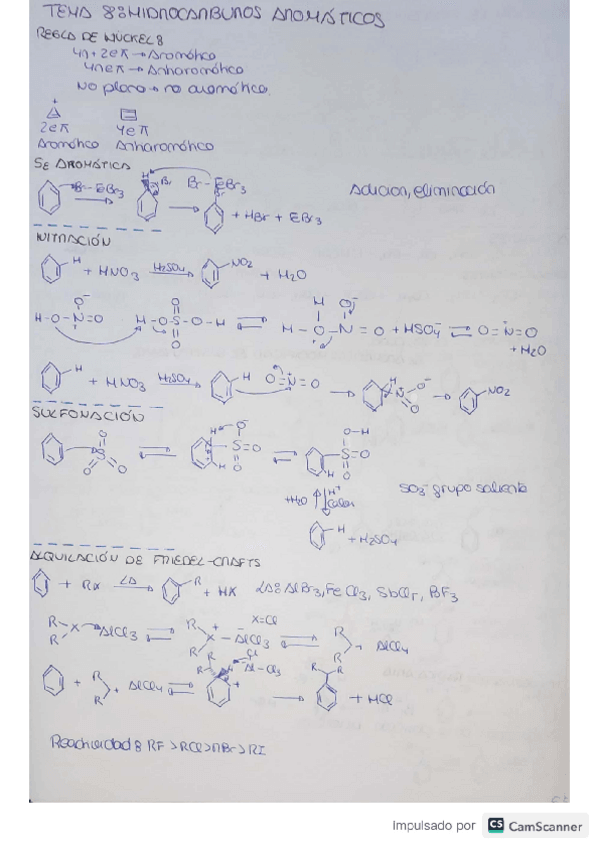 TEMA 8: HIDROCARBUROS AROMÁTICOS
REGLA DE HÜCKEL:
4n+2eπ → Aromático
4neπ → Antiaromático
No plano → no aromático
+
2eπ 4eπ
Aromático Antiaromático
SE AROMÁTICA
Br-EBr3 H Br Br-EBr3 Br + HBr + EBr3
Adición, eliminación
NITRACIÓN
H + HNO3 H2SO4 NO2 + H2O
H-O-N=O O⁻ H-O-S-O-H O O H-O-N=O H O⁻ + HSO4⁻ O=N=O + H2O
H + HNO3 H2SO4 H O=N=O H N O⁻ O NO2
SULFONACIÓN
O S O O H O⁻ S=O O H O-H S=O O H
SO3⁻ grupo saliente
+H2O H+ Calor
H + H2SO4
ALQUILACIÓN DE FRIEDEL-CRAFTS
+ RX LA R + HX LA: AlBr3, FeCl3, SbCl5, BF3
X=Cl
R-X AlCl3 R X-AlCl3 R R + AlCl4
+ R R + AlCl4 R R H Cl Al-Cl3 R R + HCl
Reactividad: RF > RCl > RBr > RI
Impulsado por CS CamScanner